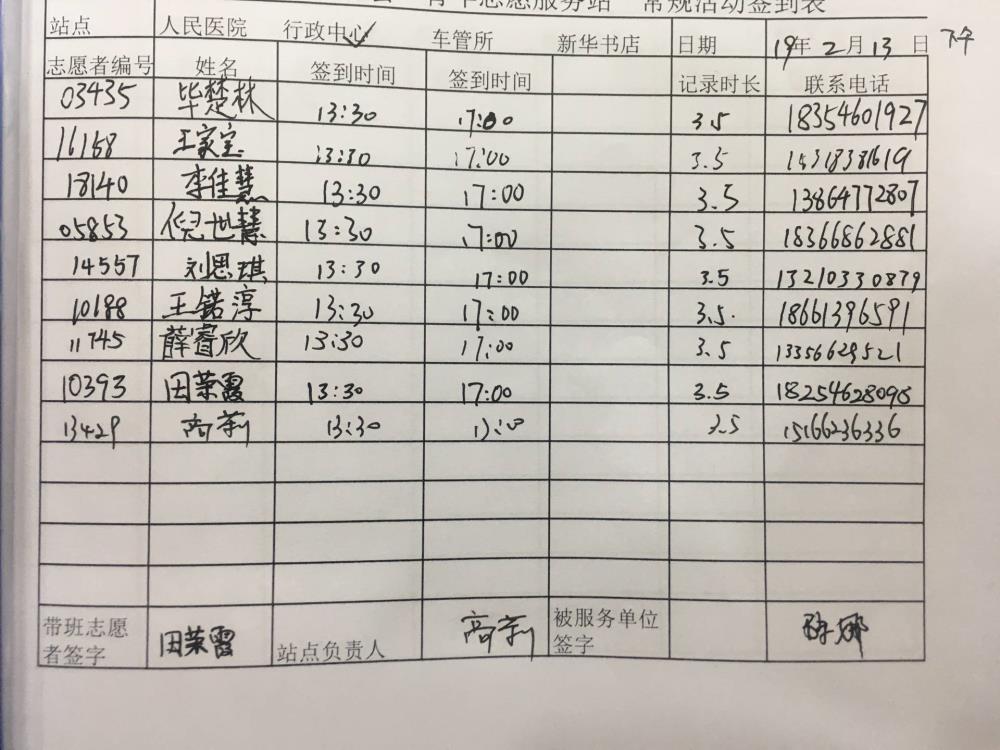 青年志愿服务站 常规活动签到表
站点 人民医院 行政中心✓ 车管所 新华书店 日期 19年2月13日 下午
志愿者编号 姓名 签到时间 签到时间 记录时长 联系电话
03435 毕楚林 13:30 17:00 3.5 18354601927
11168 王家宝 13:30 17:00 3.5
18140 李佳慧 13:30 17:00 3.5 13864772807
05853 倪世慧 13:30 17:00 3.5 18366862881
14557 刘思琪 13:30 17:00 3.5 13210330879
10188 王锘淳 13:30 17:00 3.5. 18661396591
11745 薛睿欣 13:30 17:00 3.5 13356629521
10393 田荣霞 13:30 17:00 3.5 18254628098
13429 高莉 13:30 17:00 3.5 15166236336
带班志愿 被服务单位
者签字 田荣霞 站点负责人 高莉 签字